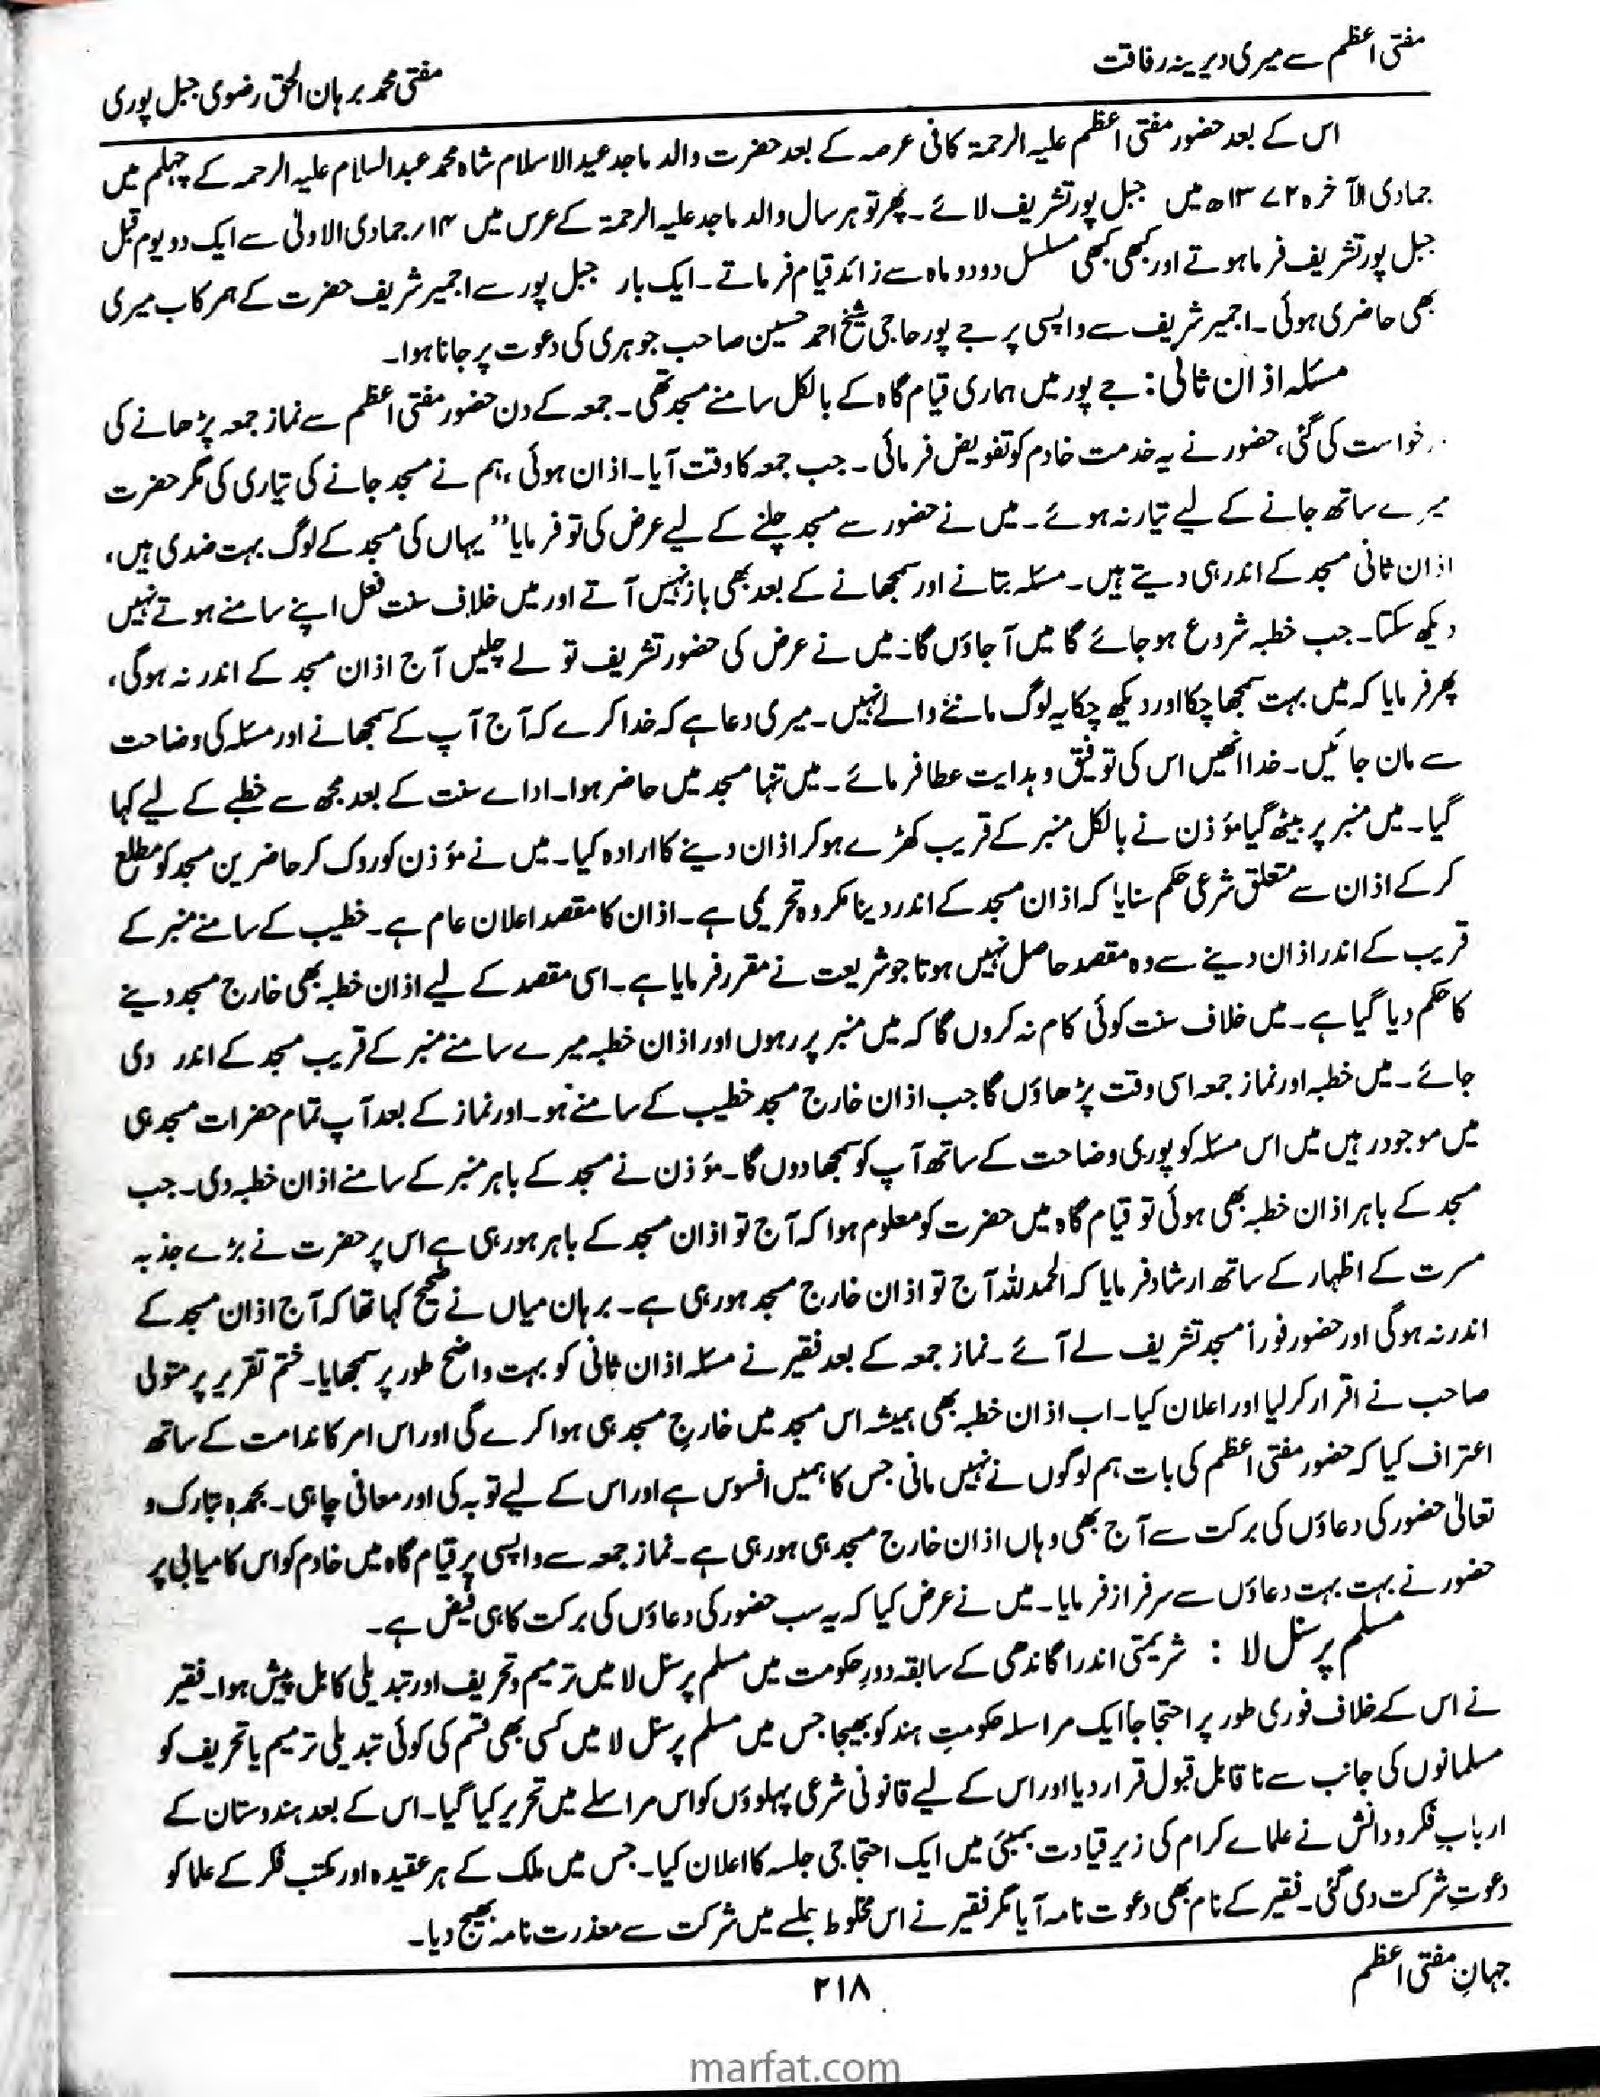 مفتی اعظم سے میری دیرینہ رفاقت
مفتی محمد برہان الحق رضوی جبل پوری
اس کے بعد حضور مفتی اعظم علیہ الرحمۃ کافی عرصہ کے بعد حضرت والد ماجد عید الاسلام شاہ محمد عبدالسلام علیہ الرحمہ کے چہلم میں
جمادی الآخرہ ۱۳۷۲ھ میں جبل پور تشریف لائے۔ پھر تو ہر سال والد ماجد علیہ الرحمۃ کے عرس میں ۱۴؍ جمادی الاولیٰ سے ایک دو یوم قبل
جبل پور تشریف فرما ہوتے اور کبھی کبھی مسلسل دو دو ماہ سے زائد قیام فرماتے۔ ایک بار جبل پور سے اجمیر شریف حضرت کے ہمرکاب میری
بھی حاضری ہوئی۔ اجمیر شریف سے واپسی پر جے پور حاجی شیخ احمد حسین صاحب جوہری کی دعوت پر جانا ہوا۔
مسئلہ اذان ثانی: جے پور میں ہماری قیام گاہ کے بالکل سامنے مسجد تھی۔ جمعہ کے دن حضور مفتی اعظم سے نماز جمعہ پڑھانے کی
درخواست کی گئی، حضور نے یہ خدمت خادم کو تفویض فرمائی۔ جب جمعہ کا وقت آیا۔ اذان ہوئی، ہم نے مسجد جانے کی تیاری کی مگر حضرت
میرے ساتھ جانے کے لیے تیار نہ ہوئے۔ میں نے حضور سے مسجد چلنے کے لیے عرض کی تو فرمایا ’’یہاں کی مسجد کے لوگ بہت ضدی ہیں،
اذان ثانی مسجد کے اندر ہی دیتے ہیں۔ مسئلہ بتانے اور سمجھانے کے بعد بھی باز نہیں آتے اور میں خلاف سنت فعل اپنے سامنے ہوتے نہیں
دیکھ سکتا۔ جب خطبہ شروع ہو جائے گا میں آ جاؤں گا۔ میں نے عرض کی حضور تشریف تو لے چلیں آج اذان مسجد کے اندر نہ ہوگی،
پھر فرمایا کہ میں بہت سمجھا چکا اور دیکھ چکا یہ لوگ ماننے والے نہیں۔ میری دعا ہے کہ خدا کرے کہ آج آپ کے سمجھانے اور مسئلہ کی وضاحت
سے مان جائیں۔ خدا انھیں اس کی توفیق و ہدایت عطا فرمائے۔ میں تنہا مسجد میں حاضر ہوا۔ اداے سنت کے بعد مجھ سے خطبے کے لیے کہا
گیا۔ میں منبر پر بیٹھ گیا مؤذن نے بالکل منبر کے قریب کھڑے ہو کر اذان دینے کا ارادہ کیا۔ میں نے مؤذن کو روک کر حاضرین مسجد کو مطلع
کر کے اذان سے متعلق شرعی حکم سنایا کہ اذان مسجد کے اندر دینا مکروہ تحریمی ہے۔ اذان کا مقصد اعلان عام ہے۔ خطیب کے سامنے منبر کے
قریب کے اندر اذان دینے سے وہ مقصد حاصل نہیں ہوتا جو شریعت نے مقرر فرمایا ہے۔ اسی مقصد کے لیے اذان خطبہ بھی خارج مسجد دینے
کا حکم دیا گیا ہے۔ میں خلاف سنت کوئی کام نہ کروں گا کہ میں منبر پر رہوں اور اذان خطبہ میرے سامنے منبر کے قریب مسجد کے اندر دی
جائے۔ میں خطبہ اور نماز جمعہ اسی وقت پڑھاؤں گا جب اذان خارج مسجد خطیب کے سامنے ہو۔ اور نماز کے بعد آپ تمام حضرات مسجد ہی
میں موجود رہیں میں اس مسئلہ کو پوری وضاحت کے ساتھ آپ کو سمجھا دوں گا۔ مؤذن نے مسجد کے باہر منبر کے سامنے اذان خطبہ دی۔ جب
مسجد کے باہر اذان خطبہ بھی ہوئی تو قیام گاہ میں حضرت کو معلوم ہوا کہ آج تو اذان مسجد کے باہر ہو رہی ہے اس پر حضرت نے بڑے جذبہ
مسرت کے اظہار کے ساتھ ارشاد فرمایا کہ الحمدللہ آج تو اذان خارج مسجد ہو رہی ہے۔ برہان میاں نے صحیح کہا تھا کہ آج اذان مسجد کے
اندر نہ ہوگی اور حضور فوراً مسجد تشریف لے آئے۔ نماز جمعہ کے بعد فقیر نے مسئلہ اذان ثانی کو بہت واضح طور پر سمجھایا۔ ختم تقریر پر متولی
صاحب نے اقرار کر لیا اور اعلان کیا۔ اب اذان خطبہ بھی ہمیشہ اس مسجد میں خارج مسجد ہی ہوا کرے گی اور اس امر کا ندامت کے ساتھ
اعتراف کیا کہ حضور مفتی اعظم کی بات ہم لوگوں نے نہیں مانی جس کا ہمیں افسوس ہے اور اس کے لیے توبہ کی اور معافی چاہی۔ بحمدہٖ تبارک و
تعالیٰ حضور کی دعاؤں کی برکت سے آج بھی وہاں اذان خارج مسجد ہی ہو رہی ہے۔ نماز جمعہ سے واپسی پر قیام گاہ میں خادم کو اس کامیابی پر
حضور نے بہت بہت دعاؤں سے سرفراز فرمایا۔ میں نے عرض کیا کہ یہ سب حضور کی دعاؤں کی برکت کا ہی فیض ہے۔
مسلم پرسنل لا : شریمتی اندرا گاندھی کے سابقہ دورِ حکومت میں مسلم پرسنل لا میں ترمیم و تحریف اور تبدیلی کا بل پیش ہوا۔ فقیر
نے اس کے خلاف فوری طور پر احتجاجاً ایک مراسلہ حکومتِ ہند کو بھیجا جس میں مسلم پرسنل لا میں کسی بھی قسم کی کوئی تبدیلی ترمیم یا تحریف کو
مسلمانوں کی جانب سے نا قابل قبول قرار دیا اور اس کے لیے قانونی شرعی پہلوؤں کو اس مراسلے میں تحریر کیا گیا۔ اس کے بعد ہندوستان کے
اربابِ فکر و دانش نے علماے کرام کی زیر قیادت بمبئی میں ایک احتجاجی جلسہ کا اعلان کیا۔ جس میں ملک کے ہر عقیدہ اور مکتب فکر کے علما کو
دعوتِ شرکت دی گئی۔ فقیر کے نام بھی دعوت نامہ آیا مگر فقیر نے اس مخلوط جلسے میں شرکت سے معذرت نامہ بھیج دیا۔
جہانِ مفتی اعظم
۲۱۸
marfat.com